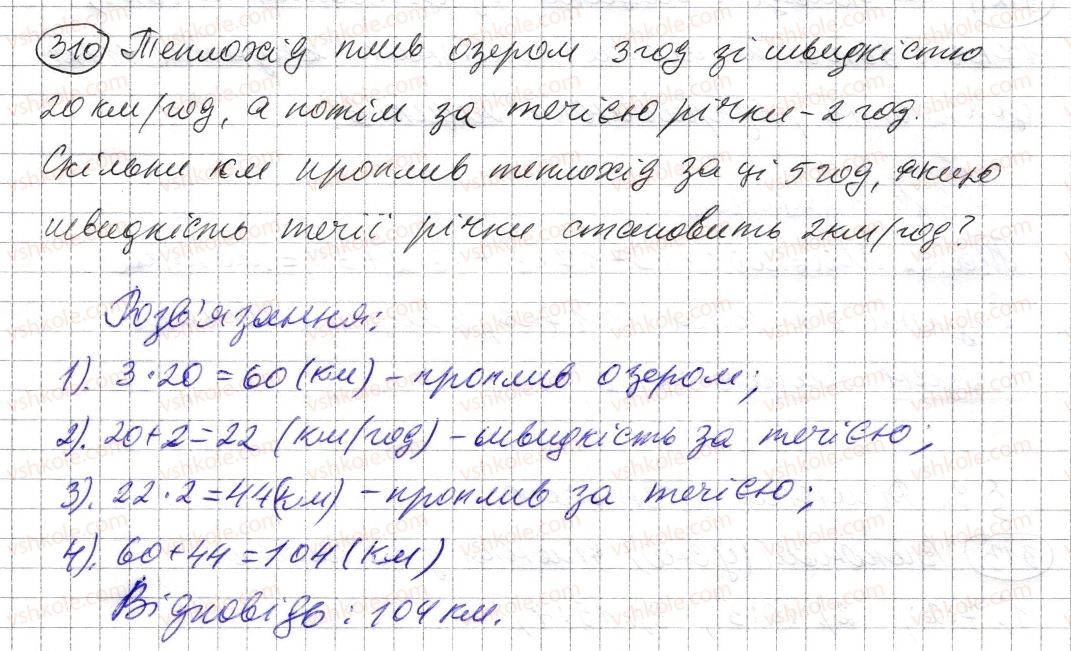 310 Теплохід плив озером 3 год зі швидкістю
20 км/год, а потім за течією річки – 2 год.
Скільки км проплив теплохід за ці 5 год, якщо
швидкість течії річки становить 2 км/год?
Розв'язання:
1). 3·20=60 (км) – проплив озером;
2). 20+2=22 (км/год) – швидкість за течією;
3). 22·2=44 (км) – проплив за течією;
4). 60+44=104 (км)
Відповідь: 104 км.